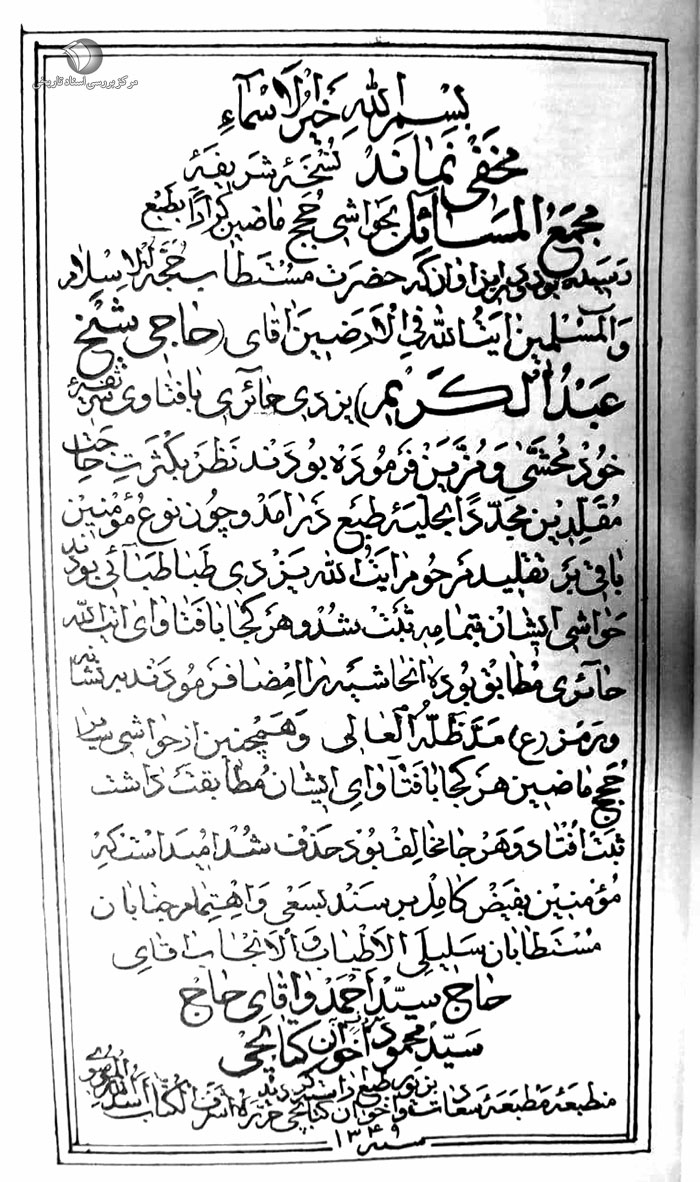 مرکز بررسی اسناد تاریخی
بسم الله خیر الاسماء
مخفی نماند نسخهٔ شریفهٔ
مجمع المسائل بحواشی حجج ماضین کرارا بطبع
رسیده بود حضرت مستطاب حجة الاسلام
والمسلمین ایت الله فی الارضین اقای (حاجی شیخ
عبد الکریم) یزدی حائری با فتاوی شریفهٔ
خود محشی و مزین فرموده بودند نظر بکثرت حاجت
مقلدین مجددا بحلیهٔ طبع درامد و چون نوع مؤمنین
باقی بر تقلید مرحوم ایت الله یزدی طباطبائی بوده‌اند
حواشی ایشان بتمامه ثبت شد و هر کجا با فتاوای ایت الله
حائری مطابق بوده انحاشیه را امضا فرمودند به نشانه
و رمز (ع) مد ظله العالی و همچنین از حواشی سایر
حجج ماضین هر کجا با فتاوای ایشان مطابقت داشت
ثبت افتاد و هر جا مخالف بود حذف شد امید استکه
مؤمنین بفیض کامل برسند بسعی و اهتمام جنابان
مستطابان سلیلی الاطیاب و الانجاب اقای
حاج سید احمد و اقای حاج
سید محمود اخوان کتابچی
بزیور طبع اراسته گردید
منطبعهٔ مطبعهٔ سعادت و اخوان کتابچی حرره اشرف الکتاب اسد الله الموسوی
سنه ۱۳۴۹